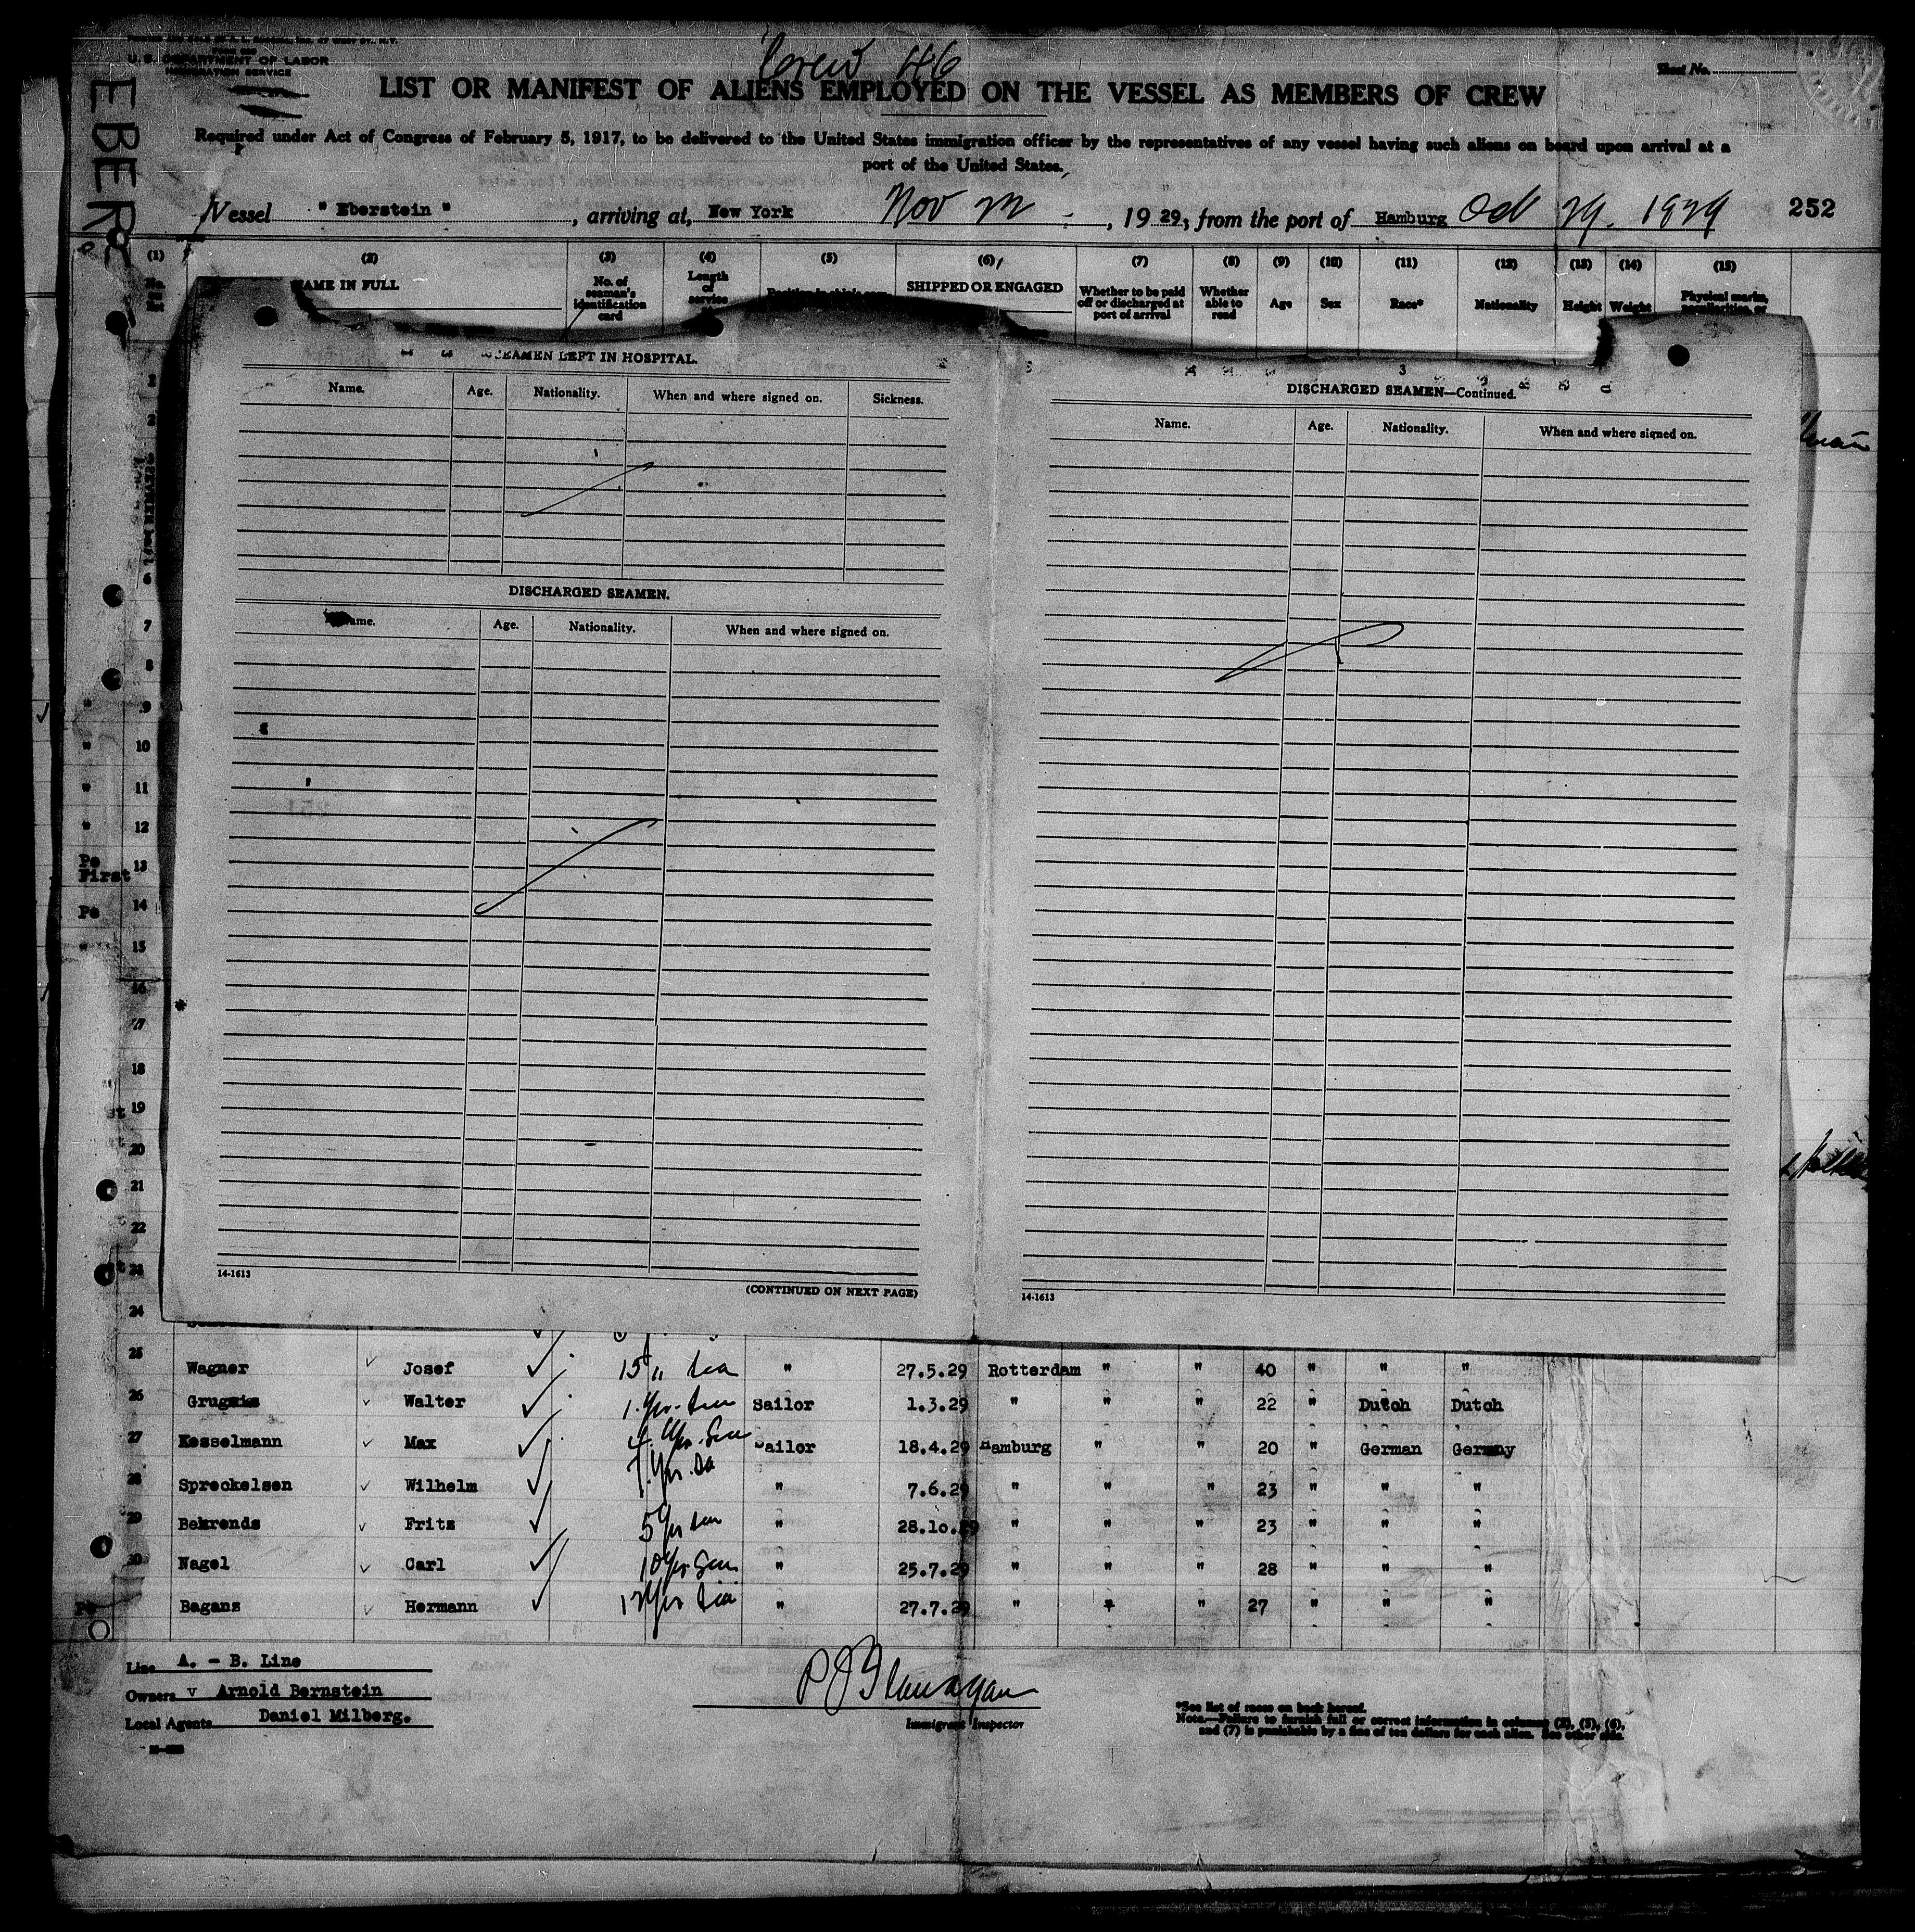 Crew 46
U. S. DEPARTMENT OF LABOR
IMMIGRATION SERVICE
Sheet No.
LIST OR MANIFEST OF ALIENS EMPLOYED ON THE VESSEL AS MEMBERS OF CREW
Required under Act of Congress of February 5, 1917, to be delivered to the United States immigration officer by the representatives of any vessel having such aliens on board upon arrival at a
port of the United States.
EBER
Vessel " Eberstein ", arriving at, New York Nov , 19 29, from the port of Hamburg Oct 29. 1929 252
(1) (2) (3) (4) (5) (6) (7) (8) (9) (10) (11) (12) (13) (14) (15)
NAME IN FULL No. of seaman's identification card Length of service SHIPPED OR ENGAGED Whether to be paid off or discharged at port of arrival Whether able to read Age Sex Race* Nationality Height Weight Physical marks,
SEAMEN LEFT IN HOSPITAL.
Name. Age. Nationality. When and where signed on. Sickness.
DISCHARGED SEAMEN.
Name. Age. Nationality. When and where signed on.
14-1613
(CONTINUED ON NEXT PAGE)
DISCHARGED SEAMEN—Continued.
Name. Age. Nationality. When and where signed on.
14-1613
1
2
7
8
" 9
" 10
" 11
" 12
Pe
First 13
Pe 14
" 15
16
17
18
st 19
20
21
22
23
24
25 Wagner Josef 15 " sea " 27.5.29 Rotterdam " " 40 " " "
26 Walter 1 Yr. Sea Sailor 1.3.29 " " " 22 " Dutch Dutch
27 Kesselmann Max 4 Yrs. Sea Sailor 18.4.29 Hamburg " " 20 " German Germany
28 Spreckelsen Wilhelm 7 Yrs. " 7.6.29 " " " 23 " " "
29 Behrends Fritz 5 Yrs sea " 28.10.29 " " " 23 " " "
30 Nagel Carl 10 Yrs Sea " 25.7.29 " " " 28 " " "
Pe Bagans Hermann Yrs Sea " 27.7.29 " " " 27 " " "
Line A. - B. Line
Owners v Arnold Bernstein
Local Agents Daniel Milberg.
P J Flanagan
Immigrant Inspector
*See list of races on back hereof.
Note.—Failure to furnish full or correct information in columns (2), (5), (6),
and (7) is punishable by a fine of ten dollars for each alien. See other side.